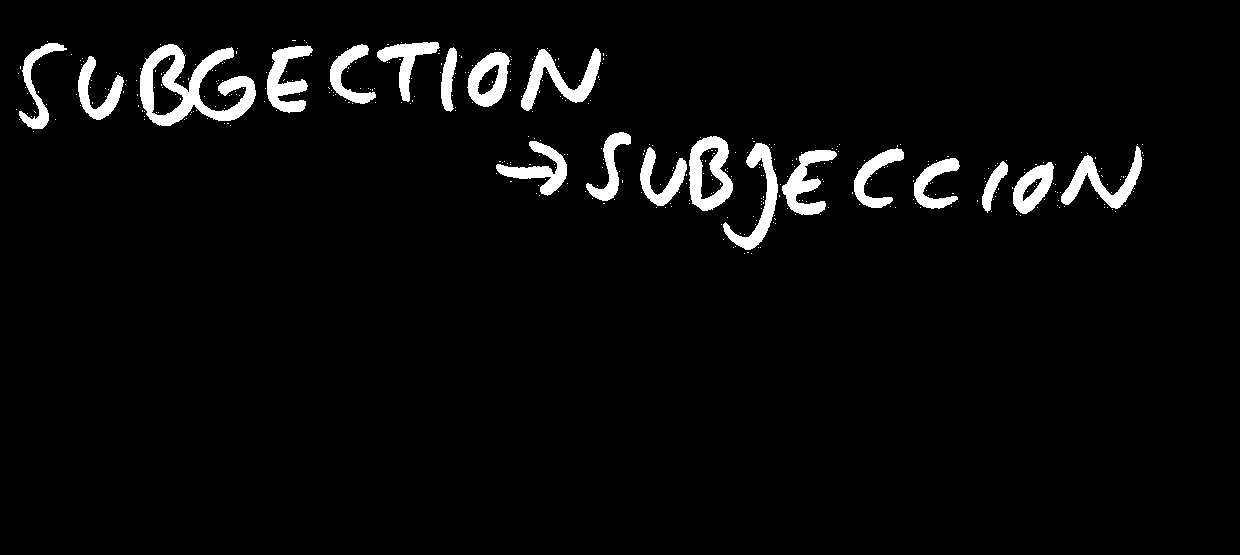 SUBGECTION
→SUBJECCION